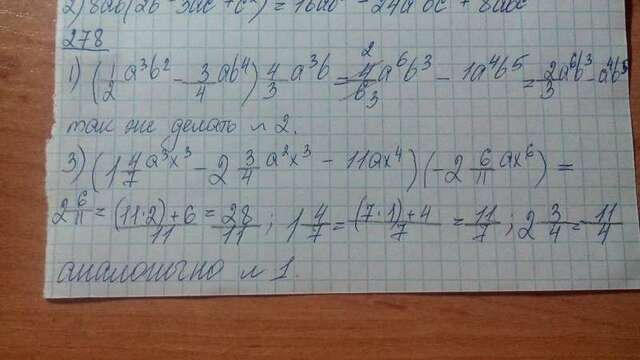 2) 8ab(2b - 3ac + c²) = 16ab² - 24a²bc + 8abc²
278
1) (1/2 a³b² - 3/4 ab⁴) 4/3 a³b = 4/6 2/3 a⁶b³ - 1a⁴b⁵ = 2/3 a⁶b³ - a⁴b⁵
так же делать и 2.
3) (1 4/7 a³x³ - 2 3/4 a²x³ - 11ax⁴)(-2 6/11 ax⁶) =
2 6/11 = (11·2)+6/11 = 28/11; 1 4/7 = (7·1)+4/7 = 11/7; 2 3/4 = 11/4
аналогично и 1.